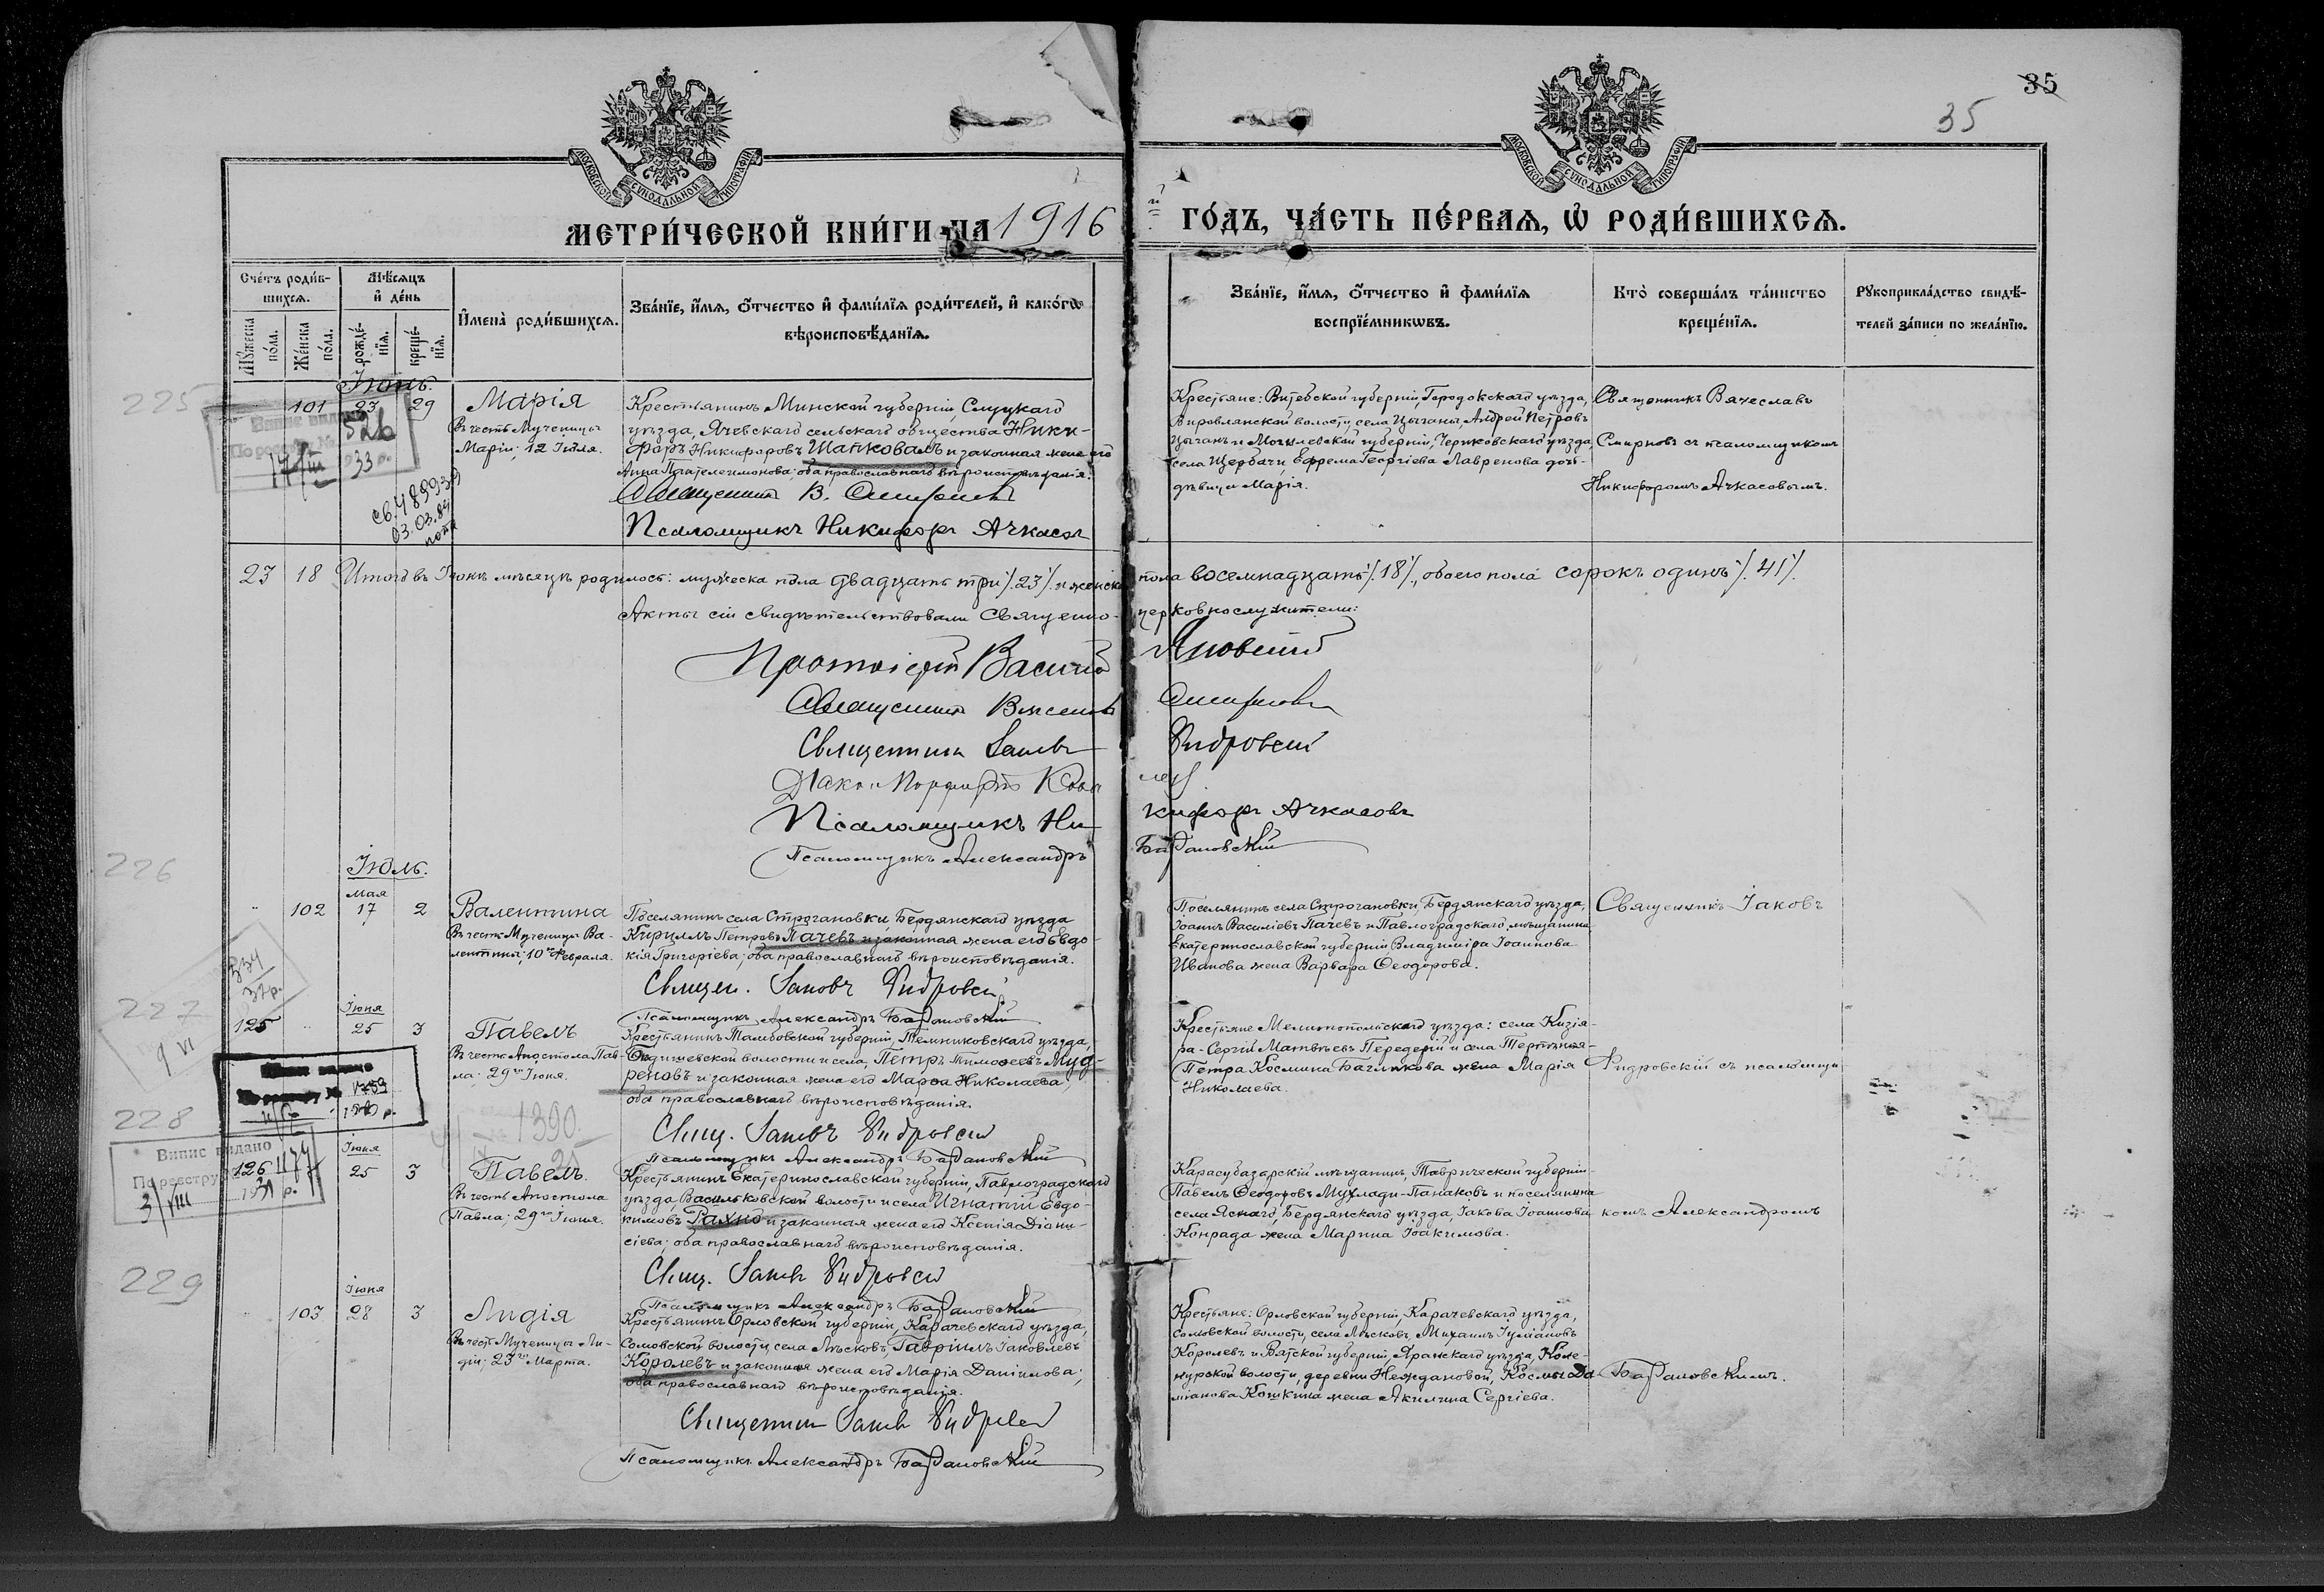 35
35
МОСКОВСКОЙ СѴНОДАЛЬНОЙ ТИПОГРАФІИ
МОСКОВСКОЙ СѴНОДАЛЬНОЙ ТИПОГРАФІИ
МЕТРИ́ЧЕСКОЙ КНИ́ГИ НА 1916 й ГО́ДЪ, ЧА́СТЬ ПЕ́РВАЯ, Ѡ҆ РОДИ́ВШИХСЯ.
Сче́тъ роди́в-
шихся.
Мꙋ́жеска по́ла.
Же́нска по́ла.
Мѣ́сяцъ
и҆ де́нь
рожде́-
нїя.
креще́-
нїя.
И҆мена̀ роди́вшихся.
Зва́нїе, и҆́мя, ѻ҆́тчество и҆ фами́лїя роди́телей, и҆ како́гѡ
вѣроисповѣ́данїя.
Зва́нїе, и҆́мя, ѻ҆́тчество и҆ фами́лїя
воспрїе́мникѡвъ.
Кто̀ соверша́лъ та́инство
креще́нїя.
Рꙋкоприкла́дство свидѣ́-
телей за́писи по жела́нїю.
Іюнь.
225
101 23 29 Марія
Въ честь Мученицы
Маріи; 12 Іюля.
Крестьянинъ Минской губерніи Слуцкаго
уѣзда, Ячевскаго сельскаго общества Ники-
форъ Никифоровъ Шапковалъ и законная жена его
Анна Пантелеимонова; оба православнаго вѣроисповѣданія.
Священникъ В. Смирновъ
Псаломщикъ Никифоръ Ачкасовъ
Крестьяне: Витебской губерніи, Городокскаго уѣзда,
Вировлянской волости, села Цыганы, Андрей Петровъ
Цыганъ и Могилевской губерніи, Чериковскаго уѣзда,
села Щербачи, Ефрема Георгіева Лавренова дочь
дѣвица Марія.
Священникъ Вячеславъ
Смирновъ съ псаломщикомъ
Никифоромъ Ачкасовымъ.
526
17/III 33 р.
03.03.
23 18 Итого въ Іюнѣ мѣсяцѣ родилось: мужеска пола двадцать три /.23/. и женска пола восемнадцать /.18/., обоего пола сорокъ одинъ /.41/.
Акты сіи свидѣтельствовали Священно-церковнослужители:
Протоіерей Василій Яновскій
Священникъ Вячеславъ Смирновъ
Священникъ Іаковъ Ридровскій
Діаконъ Порфирій
Псаломщикъ Никифоръ Ачкасовъ
Псаломщикъ Александръ Баздановскій
226
Іюль.
Мая
102 17 2 Валентина
Въ честь Мученицы Ва-
лентины; 10го Февраля.
Поселянинъ села Строгановки, Бердянскаго уѣзда
Кириллъ Петровъ Пачевъ и законная жена его Евдо-
кія Григоріева; оба православнаго вѣроисповѣданія.
Священ. Іаковъ Ридровскій
Псаломщикъ Александръ Баздановскій
Поселянинъ села Строгановки, Бердянскаго уѣзда,
Іоаннъ Василіевъ Пачевъ и Павлоградскаго мѣщанина
Екатеринославской губерніи Владиміра Іоаннова
Иванова жена Варвара Ѳеодорова.
Священникъ Іаковъ
334
32 р.
9 VI
227
Іюня
125 25 3 Павелъ
Въ честь Апостола Пав-
ла; 29го Іюня.
Крестьянинъ Тамбовской губерніи, Темниковскаго уѣзда,
волости и села, Петръ Тимоѳеевъ Муд-
реновъ и законная жена его Марѳа Николаева
оба православнаго вѣроисповѣданія.
Свящ. Іаковъ Ридровскій
Псаломщикъ Александръ Баздановскій
Крестьяне Мелитопольскаго уѣзда: села Кизія-
ра - Сергій Матвѣевъ Передерій и села Терпѣнья-
Петра Космина Багликова жена Марія
Николаева.
Ридровскій съ псаломщи-
1759
1390
228
Випис видано
По реєстру 1174
3/VIII 1931 р.
Іюня
126 25 3 Павелъ.
Въ честь Апостола
Павла; 29го Іюня.
Крестьянинъ Екатеринославской губерніи, Павлоградскаго
уѣзда, Васильковской волости и села Игнатій Евдо-
кимовъ Рахно и законная жена его Ксенія Діони-
сіева; оба православнаго вѣроисповѣданія.
Свящ. Іаковъ Ридровскій
Псаломщикъ Александръ Баздановскій
Карасубазарскій мѣщанинъ, Таврической губерніи-
Павелъ Ѳеодоровъ Мухлади-Панаковъ и поселянина
села Яснаго, Бердянскаго уѣзда, Іакова Іоаннова
Конрада жена Марина Іоакимова.
комъ Александромъ
229
Іюня
103 28 3 Лидія
Въ честь Мученицы Ли-
діи; 23го Марта.
Крестьянинъ Орловской губерніи, Карачевскаго уѣзда,
Сомовской волости, села Лѣсковъ, Гавріилъ Іаковлевъ
Королевъ и законная жена его Марія Даніилова;
оба православнаго вѣроисповѣданія.
Священникъ Іаковъ Ридровскій
Псаломщикъ Александръ Баздановскій
Крестьяне: Орловской губерніи, Карачевскаго уѣзда,
Сомовской волости, села Лѣсковъ, Михаилъ Іуліановъ
Королевъ и Вятской губерніи, Яранскаго уѣзда, Коле-
нурской волости, деревни Неждановой, Космы Да-
міанова Кошкина жена Акилина Сергіева.
Баздановскимъ.